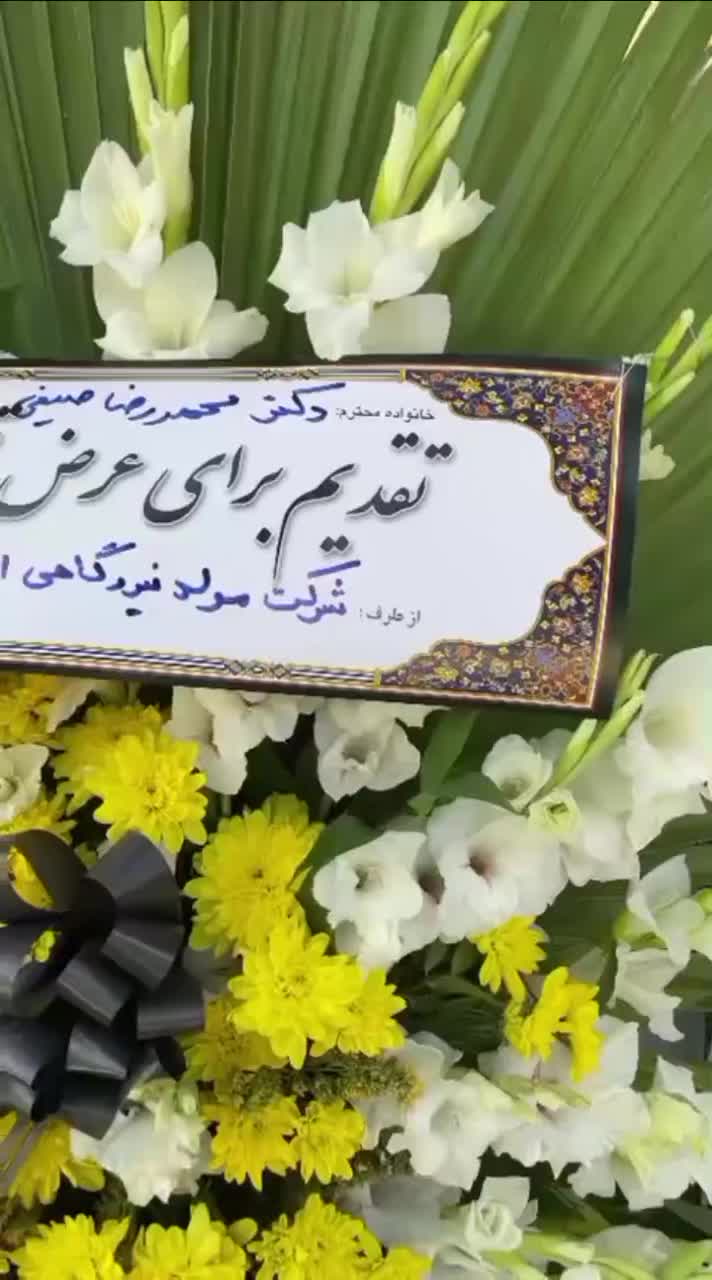 خانواده محترم: دکتر محمدرضا صیفی
تقدیم برای عرض
از طرف: شرکت مولد نیروگاهی